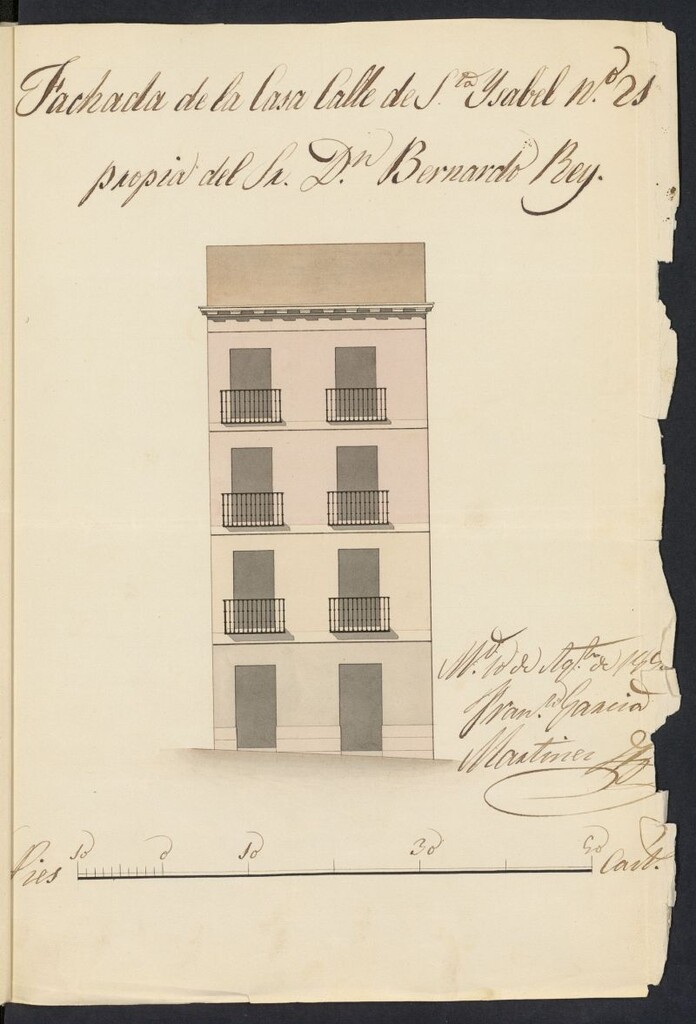 Fachada de la Casa Calle de S.ta Ysabel N.º 21
propia del Sr. D.n Bernardo Rey.
M.d 10 de Ag.to de
Fran.co Garcia
Martinez
Pies 10 0 10 30 50 Cast.